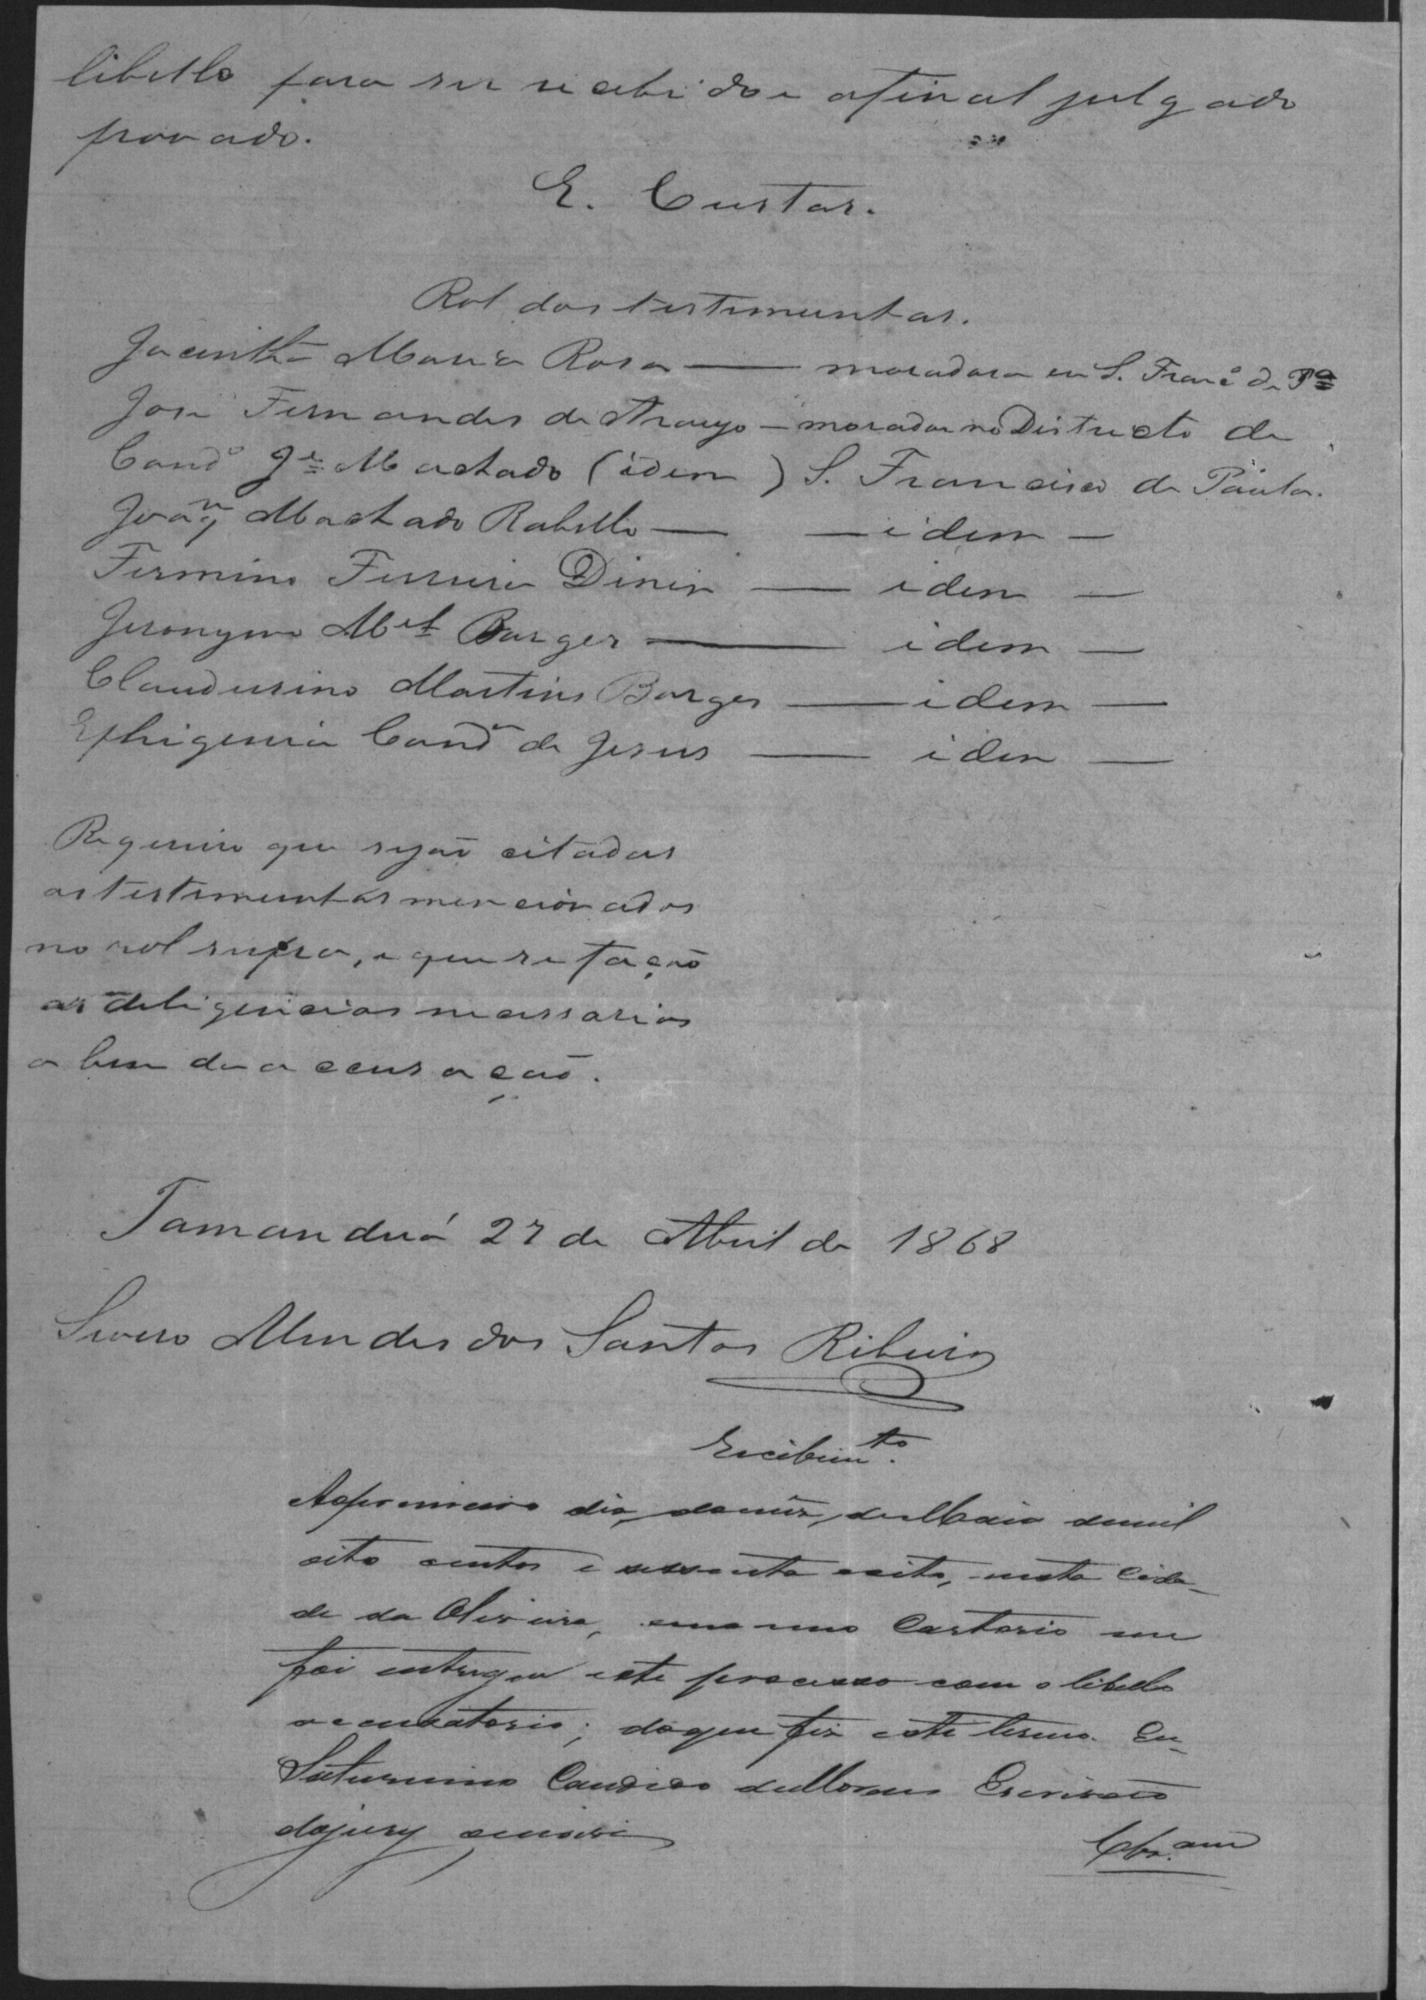 libello para ser recebido e afinal julgado
provado.
E. Custas.
Rol das testemunhas.
Jacintha Maria Rosa — moradora em S. Franco de Pa
José Fernandes de Araujo — morador no Districto de
Cando Je Machado (idem) S. Francisco de Paula.
Joaqm Machado Rabello — — idem —
Fermino Ferreira Diniz — idem —
Jeronymo Mel Borges — idem —
Claudusino Martins Borges — idem —
Ephigenia Canda de Jesus — idem —
Requeiro que sejão citadas
as testemunhas mencionadas
no rol supra, e que se fação
as deligencias necessarias
a bem da accusação.
Tamanduá 27 de Abril de 1868
Severo Mendes dos Santos Ribeiro
Recebimto.
Ao primeiro dia do mês de Maio de mil
oito centos e sessenta e oito, nesta Cida-
de da Oliveira, em o meu Cartorio me
foi entregue este processo com o libello
accusatorio; do que fiz este termo. Eu
Saturnino Candido de Moraes Escrivão
do jury escrevi